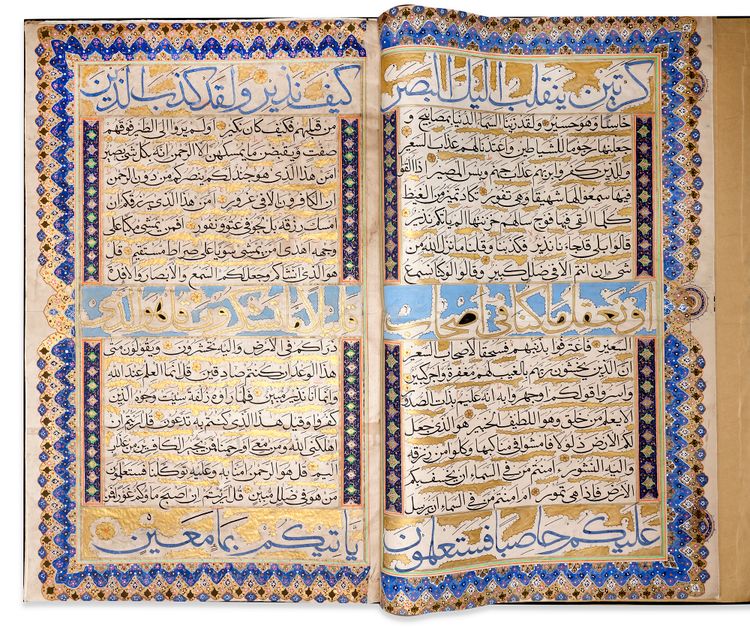 كرتين ينقلب اليك البصر
خاسئا وهو حسير ولقد زينا السماء الدنيا بمصابيح و
جعلناها رجوما للشياطين واعتدنا لهم عذاب السعير
وللذين كفروا بربهم عذاب جهنم وبئس المصير اذا القوا
فيها سمعوا لها شهيقا وهي تفور تكاد تميز من الغيظ
كلما القي فيها فوج سالهم خزنتها الم ياتكم نذير
قالوا بلى قد جاءنا نذير فكذبنا وقلنا ما نزل الله من
شئ ان انتم الا في ضلل كبير وقالوا لو كنا نسمع
او نعقل ما كنا في اصحاب
السعير فاعترفوا بذنبهم فسحقا لاصحاب السعير
ان الذين يخشون ربهم بالغيب لهم مغفرة واجر كبير
واسروا قولكم او اجهروا به انه عليم بذات الصدور
الا يعلم من خلق وهو اللطيف الخبير هو الذي جعل
لكم الارض ذلولا فامشوا في مناكبها وكلوا من رزقه
واليه النشور ءامنتم من في السماء ان يخسف بكم
الارض فاذا هي تمور ام امنتم من في السماء ان يرسل
عليكم حاصبا فستعلمون
كيف نذير ولقد كذب الذين
من قبلهم فكيف كان نكير اولم يروا الى الطير فوقهم
صافات ويقبضن ما يمسكهن الا الرحمن انه بكل شئ بصير
امن هذا الذي هو جند لكم ينصركم من دون الرحمن
ان الكافرون الا في غرور امن هذا الذي يرزقكم ان
امسك رزقه بل لجوا في عتو ونفور افمن يمشي مكبا على
وجهه اهدى امن يمشي سويا على صراط مستقيم قل
هو الذي انشاكم وجعل لكم السمع والابصار والافئدة
قليلا ما تشكرون قل هو الذي
ذراكم في الارض واليه تحشرون ويقولون متى
هذا الوعد ان كنتم صادقين قل انما العلم عند الله
وانما انا نذير مبين فلما راوه زلفة سيئت وجوه الذين
كفروا وقيل هذا الذي كنتم به تدعون قل ارايتم ان
اهلكني الله ومن معي او رحمنا فمن يجير الكافرين من عذاب
اليم قل هو الرحمن امنا به وعليه توكلنا فستعلمون
من هو في ضلل مبين قل ارايتم ان اصبح ماؤكم غورا فمن
ياتيكم بماء معين